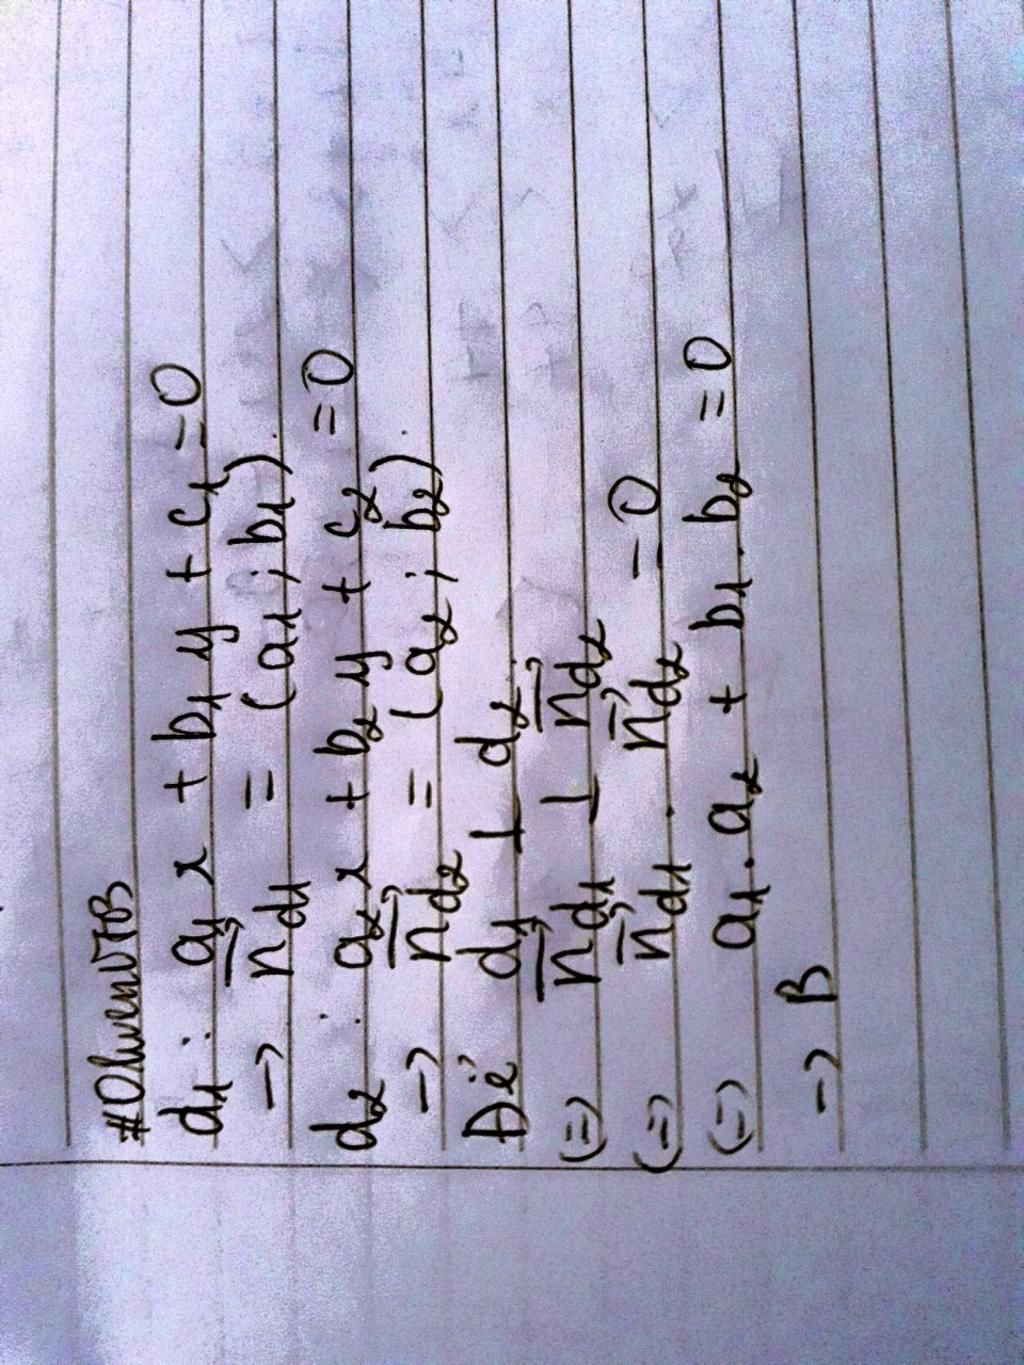 #OliverNTB
d₁: a₁x + b₁y + c₁ = 0
→ n⃗d₁ = (a₁; b₁).
d₂: a₂x + b₂y + c₂ = 0
→ n⃗d₂ = (a₂; b₂).
Để d₁ ⊥ d₂
(=) n⃗d₁ ⊥ n⃗d₂
(=) n⃗d₁ . n⃗d₂ = 0
(=) a₁.a₂ + b₁.b₂ = 0
→ B